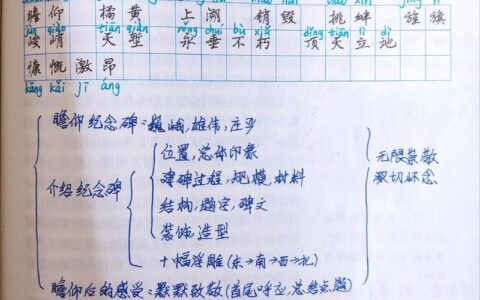 瞻仰 橘黄 上溯 销毁 挑衅 旌旗
jùn qiào tiān qiàn yǒng chuí bù xiǔ dǐng tiān lì dì
峻峭 天堑 永垂不朽 顶天立地
慷慨激昂
kāng kǎi jī áng
瞻仰纪念碑:巍峨,雄伟,庄严
位置,总体印象
介绍纪念碑 建碑过程,规模,材料
结构,题字,碑文
装饰,造型
十幅浮雕(东→南→西→北)
瞻仰后的感受:默默致敬(首尾呼应,总结点题)
无限崇敬
深切怀念